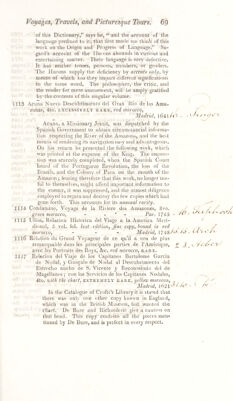 Voyages, Travels, and Picturesque Tours. 69
of this Dictionary," says he, "and the account of the
language prefixed to it, that first made me think of this
work on the Origin and Progress of Language." Sa-
gard's account of the Hurons abounds in curious and
entertaining matter. Their language is very defective.
It had neither tenses, persons, numbers, or genders.
The Hurons supply the deficiency by accents only, by
means of which too they impart different significations
to the same word. The philosopher, the critic, and
the reader for mere amusement, will be amply gratified
by the contents of this singular volume.
1113 Acuna Nuevo Descubrimiento del Gran Rio de las Ama-
zonas, EXCESSIVELY RARE, red morocco,
Madrid, 1641
Acuna, a Missionary Jesuit, was dispatched by the
Spanish Government to obtain circumstancial informa-
tion respecting the River of the Amazons, and the best
means of rendering its navigation easy and advantageous.
On his return he presented the following work, which
was printed at the expense of the King. The impres-
sion was scarcely completed, when the Spanish Court
heard of the Portuguese Revolution, the loss of the
Brazils, and the Colony of Para on the mouth of the
Amazon; fearing therefore that this work, no longer use-
ful to themselves, might afford important information to
the enemy, it was suppressed, and the utmost diligence
employed to regain and destroy the few copies which had
gone forth. This accounts for its unusual rarity.
1114 Condamine, Voyage de la Riviere des Amazones,
green morocco, Par. 1745
1115 Ulloa, Relacion Historica del Viage a la America Meri-
dional, 5 vol. fol. best edition, fine copy, bound in red
morocco, Madrid, 1748
1116 Relation du Grand Voyageur de ce qu'il a veu de plus
remarquable dans les principales parties de l'Amerique,
avec les Portraits des Roys, &c. red morocco, RARE.
1117 Relacion del Viage de los Capitanes Bartolome Garcia
de Nodal, y Gonçalo de Nodal al Descubrimiento del
Estrecho nuebo de S. Vicente y Reconosimto del de
Magallanes; con los Servicios de los Capitanes Nodales,
&c. with the chart, EXTREMELY RARE, yellow morocco,
Madrid, 1621
In the Catalogue of Crofts's Library it is stated that
there was only one other copy known in England,
which was in the British Museum, but wanted the
chart. De Bure and Richarderie give a caution on
that head. This copy contains all the pieces men-
tioned by De Bure, and is perfect in every respect.